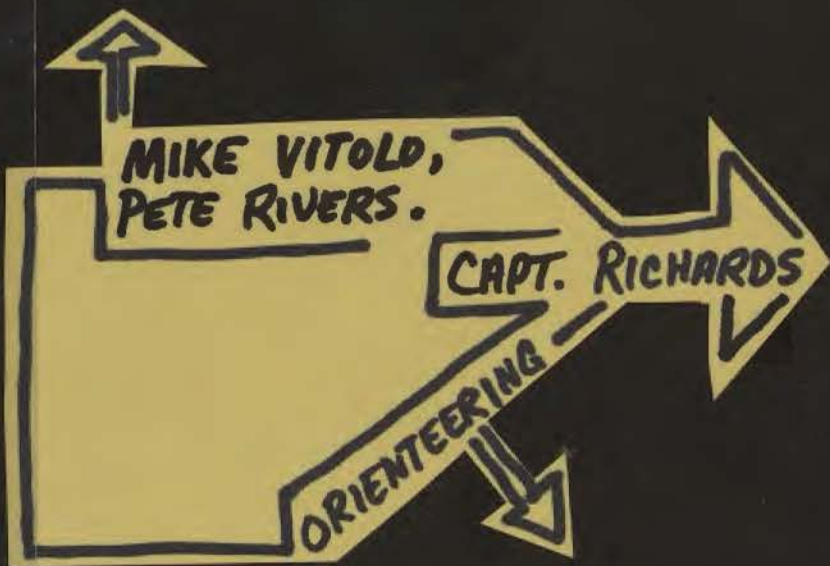 MIKE VITOLD,
PETE RIVERS.
CAPT. RICHARDS
ORIENTEERING